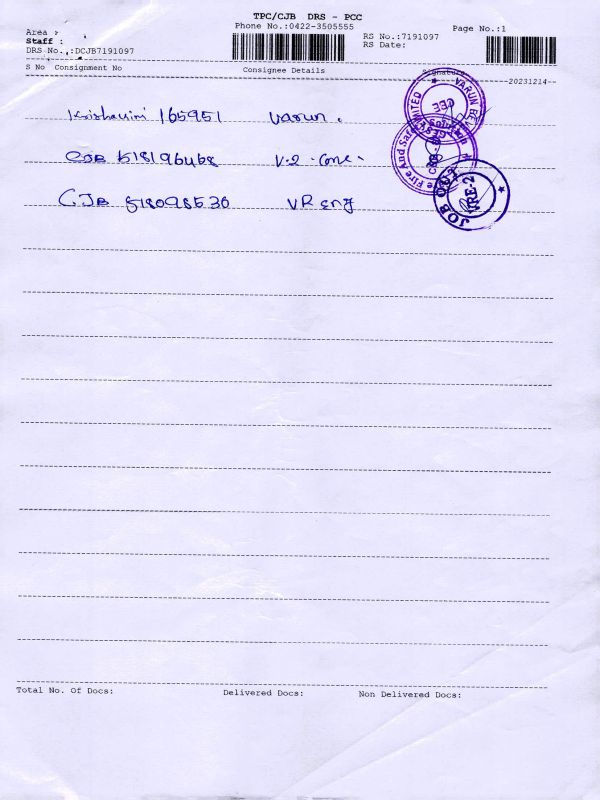 TPC/CJB DRS - PCC
Phone No.:0422-3505555
Page No.:1
Area :
Staff :
DRS No.:DCJB7191097
RS No.:7191097
RS Date:
S No Consignment No
Consignee Details
Signature
20231214
165951 Varun.
CJB 518196468 V.2. Conc.
CJB 518098530 VR eng
VARUN
Fire And Safety
LIMITED
JOB OUT
VRE-2
Total No. Of Docs:
Delivered Docs:
Non Delivered Docs: